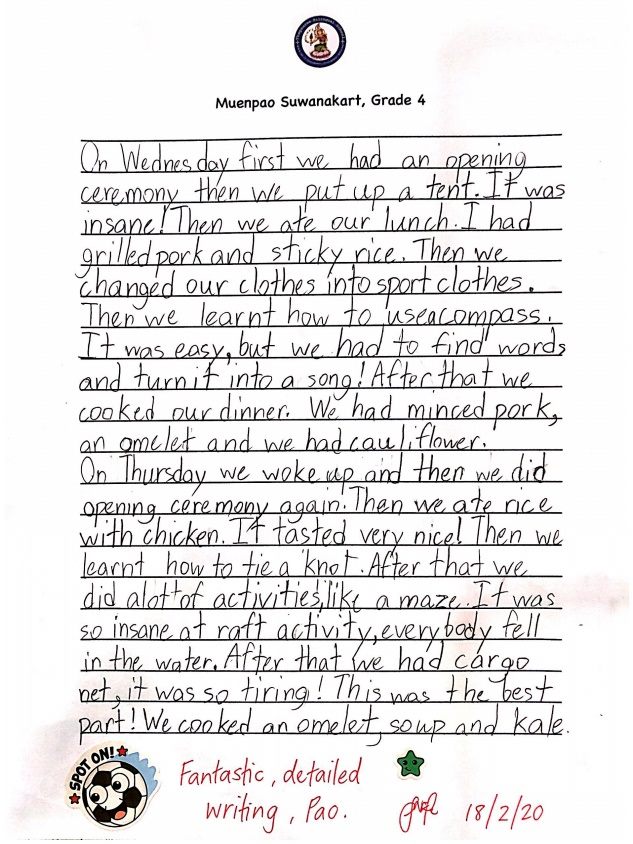 Muenpao Suwanakart, Grade 4
On Wednesday first we had an opening
ceremony then we put up a tent. It was
insane! Then we ate our lunch. I had
grilled pork and sticky rice. Then we
changed our clothes into sport clothes.
Then we learnt how to use a compass.
It was easy, but we had to find words
and turn it into a song! After that we
cooked our dinner. We had minced pork,
an omelet and we had cauliflower.
On Thursday we woke up and then we did
opening ceremony again. Then we ate rice
with chicken. It tasted very nice! Then we
learnt how to tie a knot. After that we
did alott of activities, like a maze. It was
so insane at raft activity, everybody fell
in the water. After that we had cargo
net, it was so tiring! This was the best
part! We cooked an omelet, soup and kale.
SPOT ON!
Fantastic, detailed
writing, Pao.
18/2/20